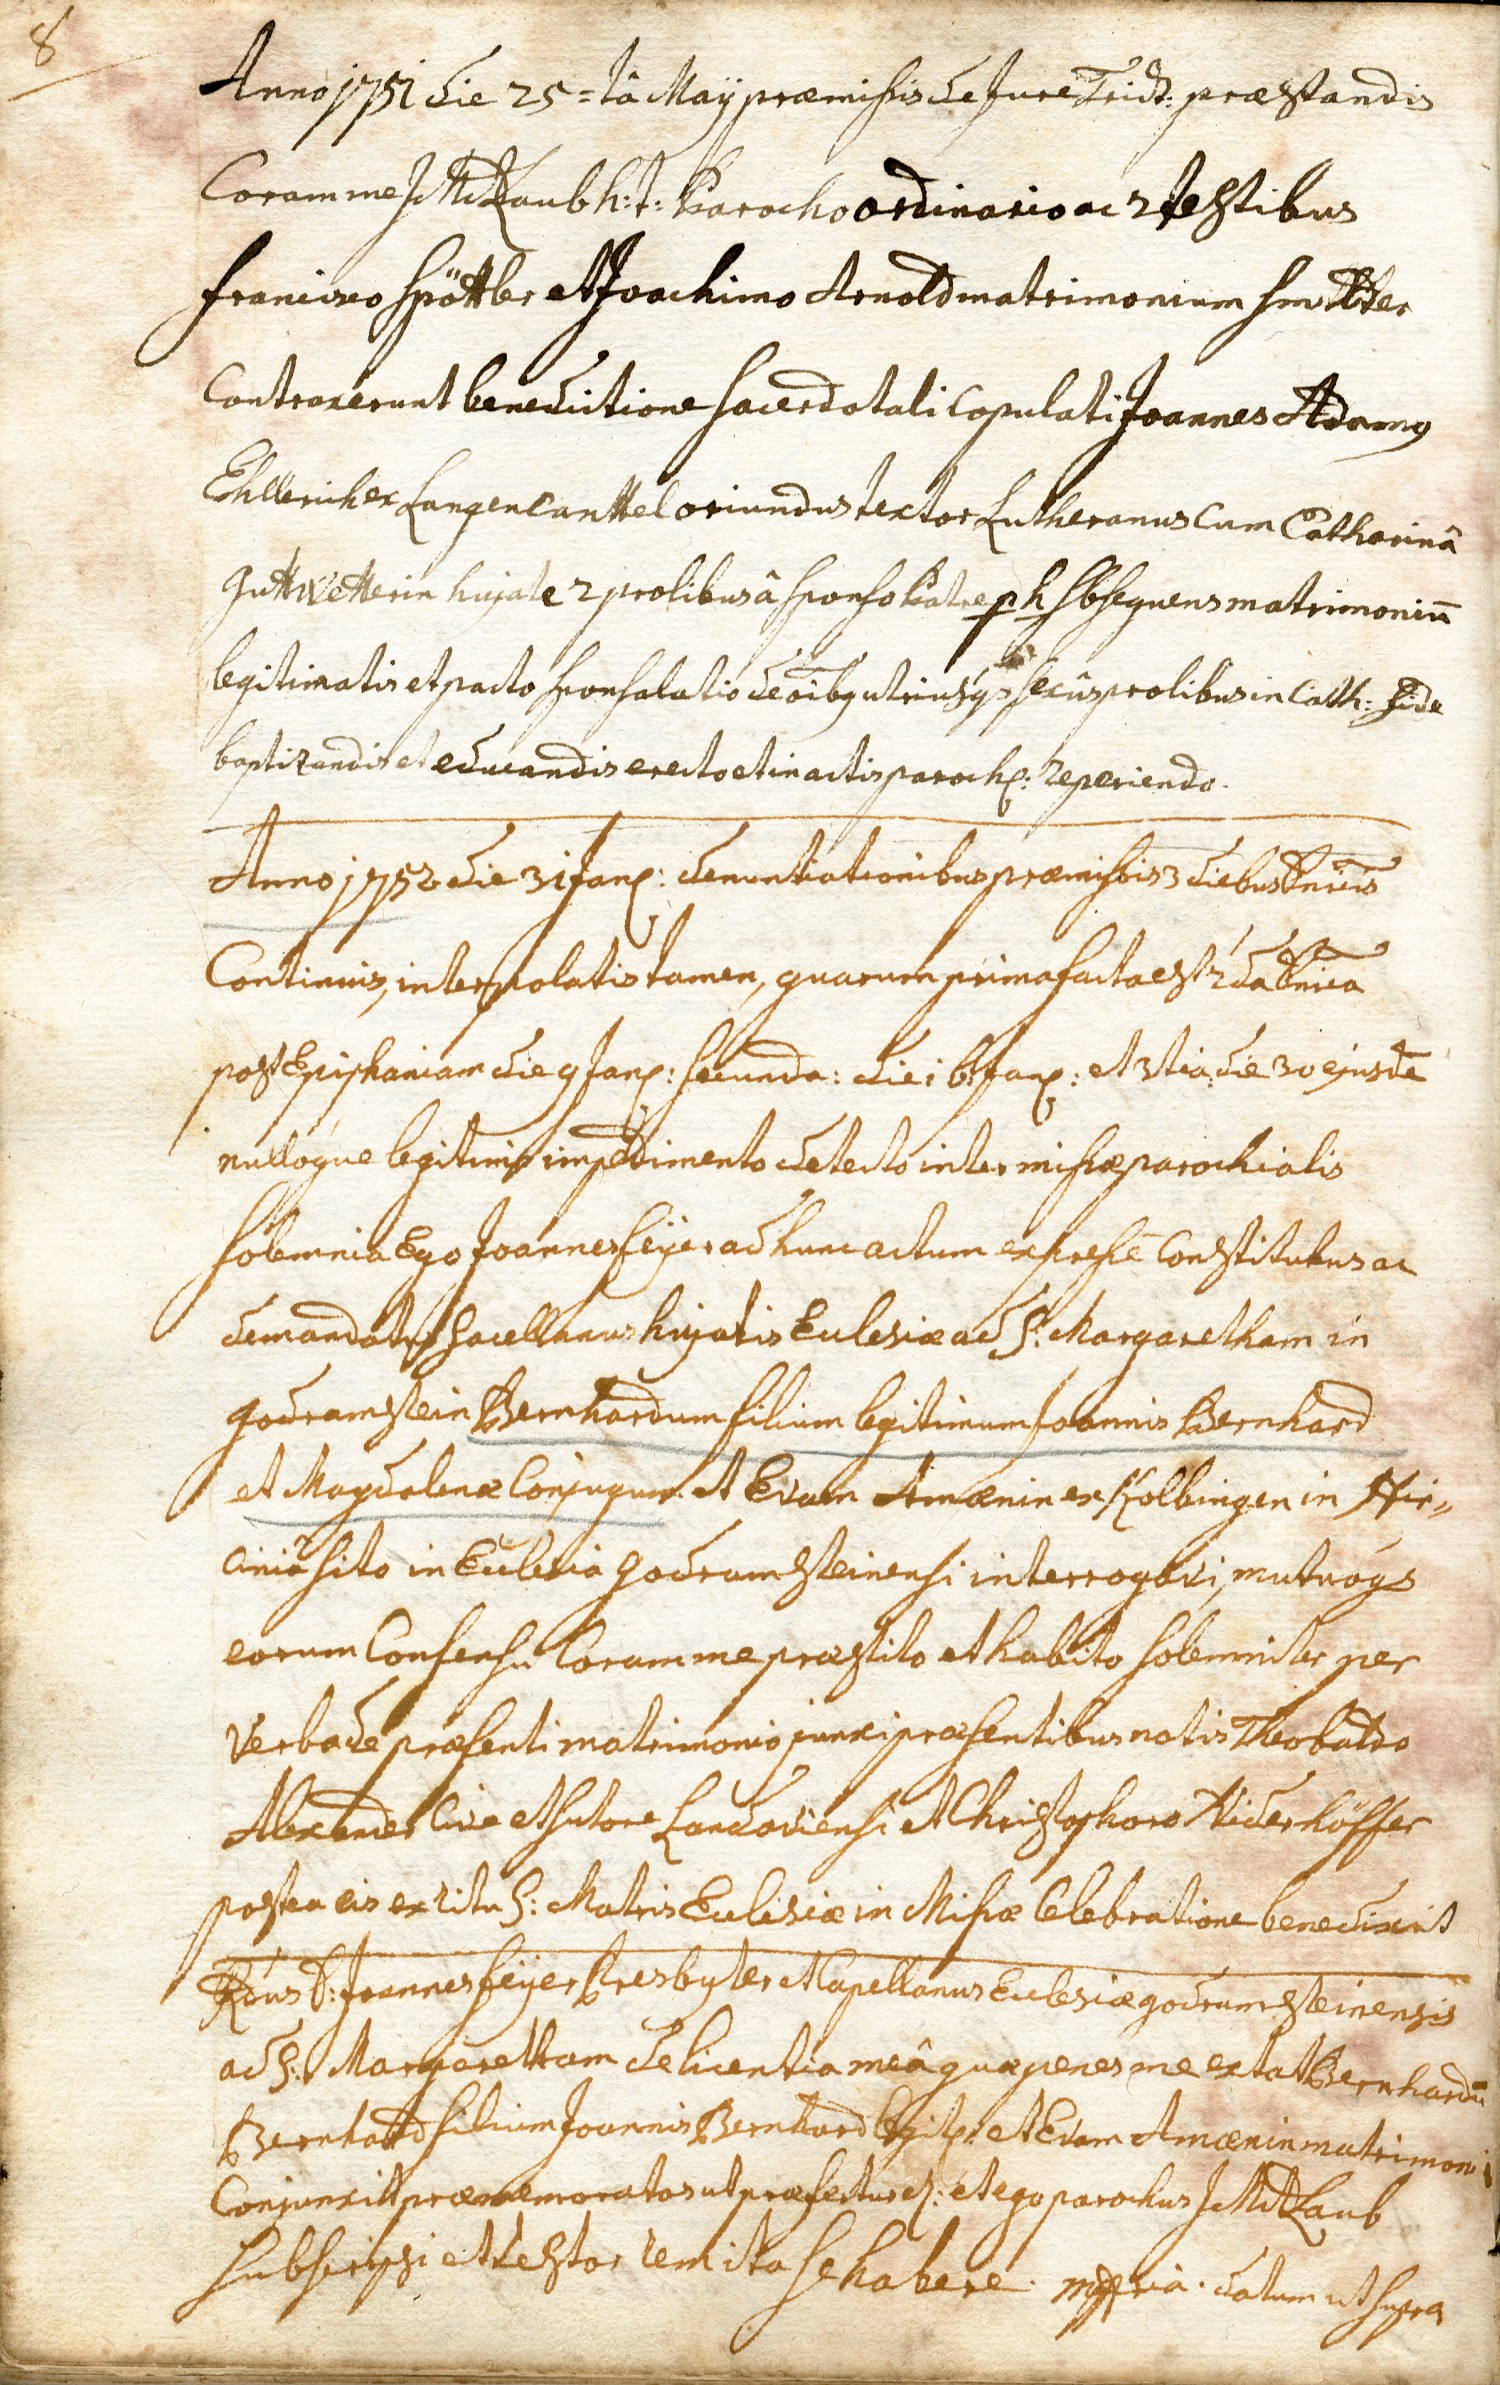 8
Anno 1751 die 25=tâ Maÿ præmissis de Jure Trid: præstandis
Coram me Laub h: t: Parocho ordinario ac 2 testibus
francisco Spöttler et Joachimo Arnold matrimonium
Contraxerunt benedictione sacerdotali Copulati Joannes Adamus
Langencanttel oriundus textor Lutheranus Cum Catharinâ
hujate 2 prolibus â sponso Patre sbsequens matrimoniū
legitimatis et pacto sponsalatio de oibg utriusqs sexûs prolibus in Cath: fide
baptizandis et educandis erecto et in actis paroch: reperiendo.
Anno 1752 die 31 Jan: denuntiationibus præmissis 3 diebus Dnicis
Continuis, interpolatis tamen, quarum prima facta est 2da Dnica
post Epiphaniam die 9 Jan: secunda: die 16 Jan: et 3tia: die 30 ejusdē
nullóque legitimo impedimento detecto inter missæ parochialis
Solemnia Ego Joannes feÿer ad hunc actum expressè Constitutus ac
demandatus sacellanus hujatis Ecclesiæ ad S: Margaretham in
godramstein Bernhardum filium legitimum Joannis Bernhard
et Magdalenæ Conjugum et Evam Amænin ex Kolbingen in Hir„
ciniâ sito in Ecclesia godramsteinensi interrogavi, mutuóqs
eorum Consensu Coram me præstito et habito solemniter per
Verba de præsenti matrimonio junxi præsentibus notis Theobaldo
Alexander Cive et sutore Landaviensi et Christophoro Niderhöffer
postea eis ex ritu S: Matris Ecclesiæ in Missæ Celebratione benedixit
Rdus D: Joannes feÿer Presbyter et Capellanus Ecclesiæ godramsteinensis
ad S: Margaretham de licentia meâ quæ penes me extat Bernhardū
Bernhard filium Joannis Bernhard legit: et Evam Amænin matrimoni
Conjunxit præmemoratos ut præfertur et ego parochus Laub
Subscripsi et testor rem ita se habere. mppria. datum ut supra